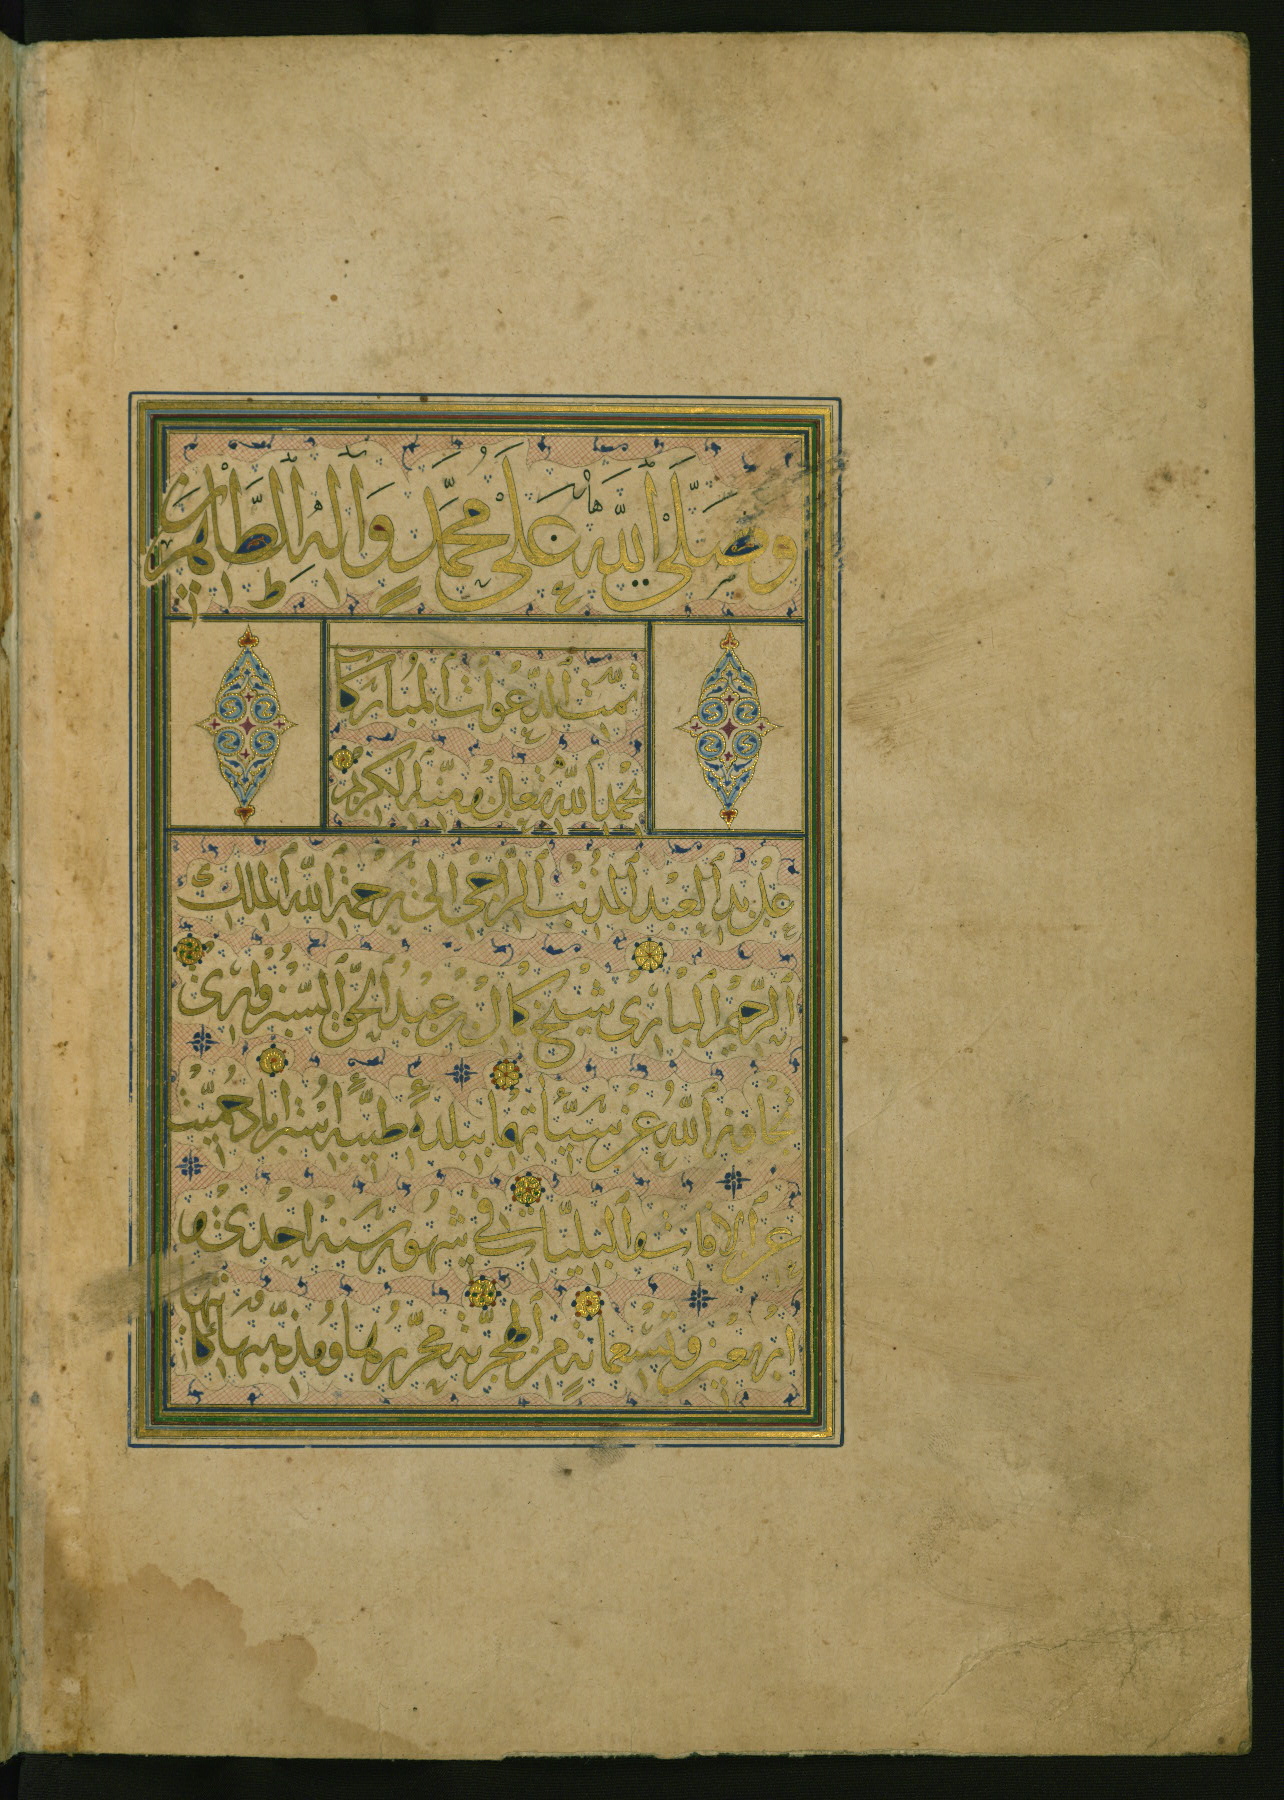 وَصَلَّى اللّٰهُ عَلَى مُحَمَّدٍ وَاٰلِهِ الطَّاهِرِينَ
تمت الدعوات المباركات
بحمد الله تعالى ومنه الكريم
على يد العبد المذنب الراجي الى رحمة الله الملك
الرحيم الباري شيخ كمال بن عبد الحق السبزواري
تجاوز الله عن سيئاتهما ببلدة طيبة استراباد حميت
عن الافات والبليات في شهور سنة احدى و
اربعين وتسعمائة من الهجرية محررها ومذهبها كاتبها